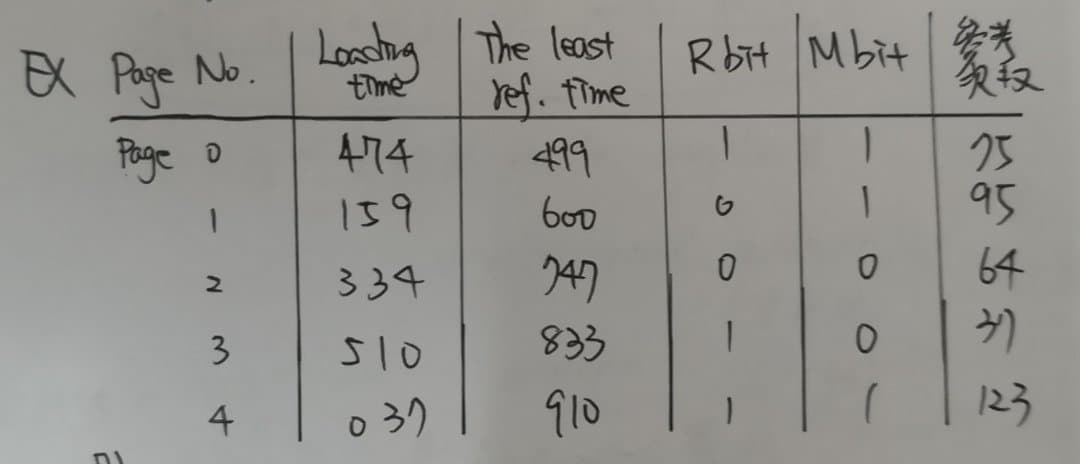 EX Page No. Loading time The least ref. time R bit M bit 參考次数
Page 0 474 499 1 1 75
1 159 600 0 1 95
2 334 747 0 0 64
3 510 833 1 0 37
4 037 910 1 1 123